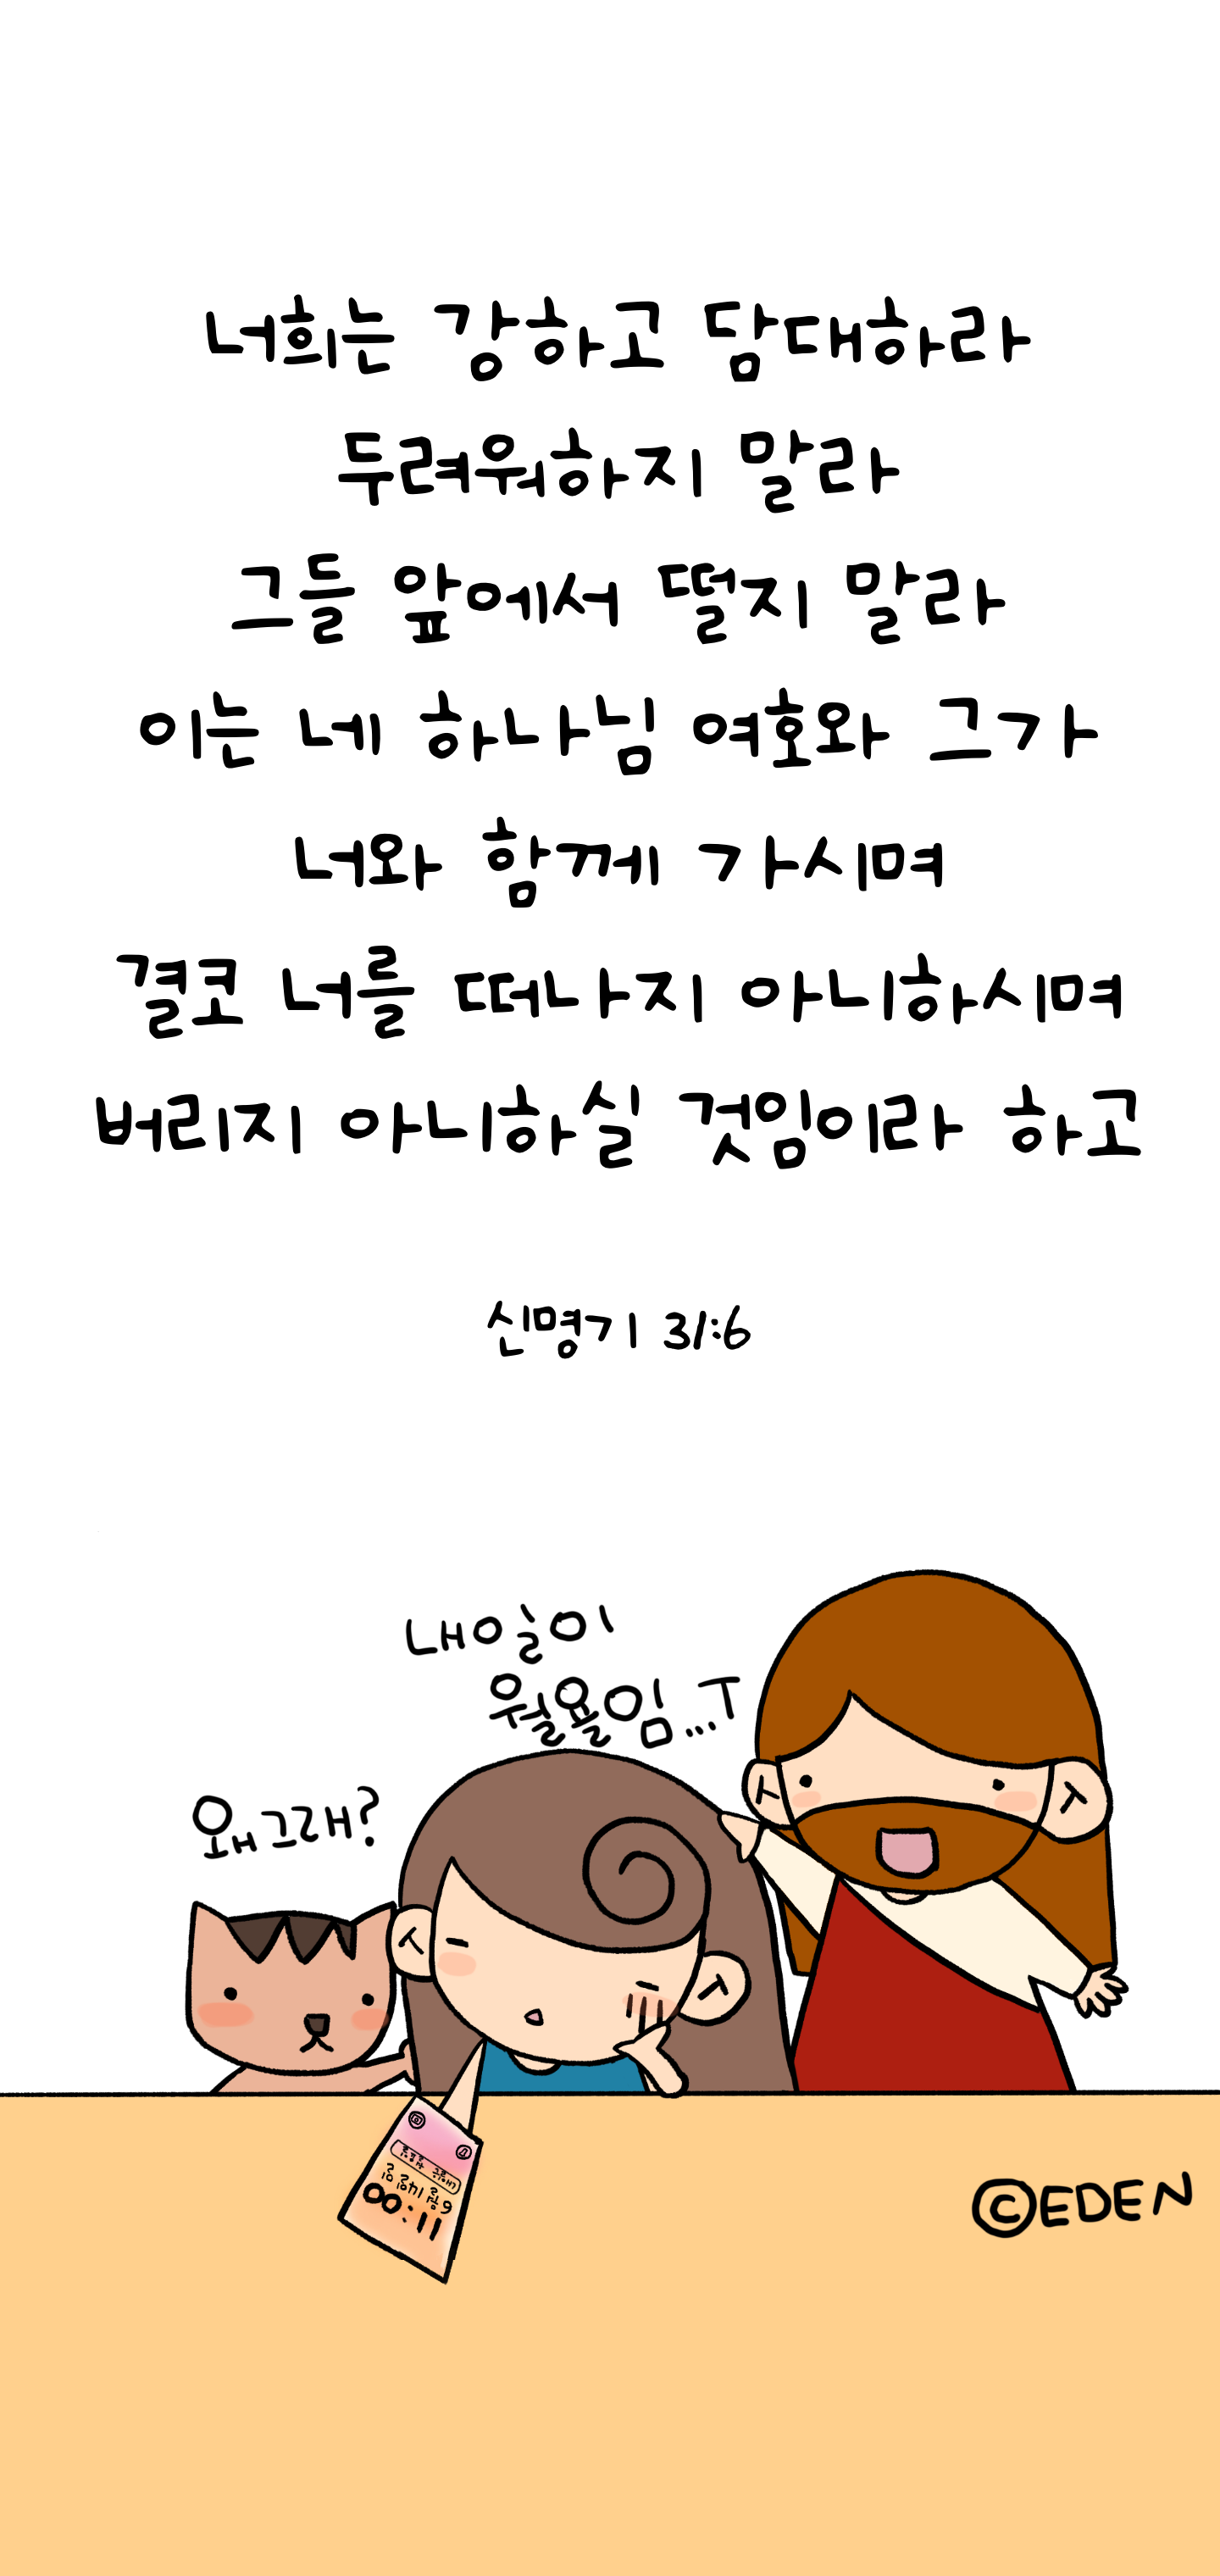 너희는 강하고 담대하라
두려워하지 말라
그들 앞에서 떨지 말라
이는 네 하나님 여호와 그가
너와 함께 가시며
결코 너를 떠나지 아니하시며
버리지 아니하실 것임이라 하고
신명기 31:6
내일이
월욜임...T
왜그래?
00:11
©EDEN